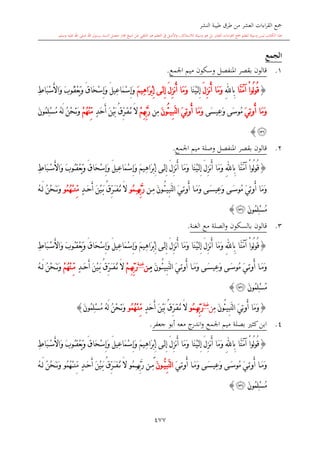 جمع القراءات العشر من طرق طيبة النشر
الجمع
١. قالون بقصر المنفصل وسكون ميم الجمع.
﴿ قُولُوٓاْ ءَامَنَّا بِٱللَّهِ وَمَآ أُنزِلَ إِلَيۡنَا وَمَآ أُنزِلَ إِلَىٰٓ إِبۡرَٰهِـۧمَ وَإِسۡمَٰعِيلَ وَإِسۡحَٰقَ وَيَعۡقُوبَ وَٱلۡأَسۡبَاطِ
وَمَآ أُوتِيَ مُوسَىٰ وَعِيسَىٰ وَمَآ أُوتِيَ ٱلنَّبِيُّونَ مِن رَّبِّهِمۡ لَا نُفَرِّقُ بَيۡنَ أَحَدٖ مِّنۡهُمۡ وَنَحۡنُ لَهُۥ مُسۡلِمُونَ
﴾
٢. قالون بقصر المنفصل وصلة ميم الجمع.
﴿ قُولُوٓاْ ءَامَنَّا بِٱللَّهِ وَمَآ أُنزِلَ إِلَيۡنَا وَمَآ أُنزِلَ إِلَىٰٓ إِبۡرَٰهِـۧمَ وَإِسۡمَٰعِيلَ وَإِسۡحَٰقَ وَيَعۡقُوبَ وَٱلۡأَسۡبَاطِ
وَمَآ أُوتِيَ مُوسَىٰ وَعِيسَىٰ وَمَآ أُوتِيَ ٱلنَّبِيُّونَ مِن رَّبِّهِمُو لَا نُفَرِّقُ بَيۡنَ أَحَدٖ مِّنۡهُمُو وَنَحۡنُ لَهُۥ
مُسۡلِمُونَ ﴾
٣. قالون بالسكون والصلة مع الغنة.
﴿ قُولُوٓاْ ءَامَنَّا بِٱللَّهِ وَمَآ أُنزِلَ إِلَيۡنَا وَمَآ أُنزِلَ إِلَىٰٓ إِبۡرَٰهِـۧمَ وَإِسۡمَٰعِيلَ وَإِسۡحَٰقَ وَيَعۡقُوبَ وَٱلۡأَسۡبَاطِ
وَمَآ أُوتِيَ مُوسَىٰ وَعِيسَىٰ وَمَآ أُوتِيَ ٱلنَّبِيُّونَ مِن رَّبِّهِمۡ لَا نُفَرِّقُ بَيۡنَ أَحَدٖ مِّنۡهُمۡ وَنَحۡنُ لَهُۥ
مُسۡلِمُونَ ﴾
﴿ وَمَآ أُوتِيَ ٱلنَّبِيُّونَ مِن رَّبِّهِمُو لَا نُفَرِّقُ بَيۡنَ أَحَدٖ مِّنۡهُمُو وَنَحۡنُ لَهُۥ مُسۡلِمُونَ ﴾
٤. ابن كثير بصلة ميم الجمع واندرج معه أبو جعفر.
﴿ قُولُوٓاْ ءَامَنَّا بِٱللَّهِ وَمَآ أُنزِلَ إِلَيۡنَا وَمَآ أُنزِلَ إِلَىٰٓ إِبۡرَٰهِـۧمَ وَإِسۡمَٰعِيلَ وَإِسۡحَٰقَ وَيَعۡقُوبَ وَٱلۡأَسۡبَاطِ
وَمَآ أُوتِيَ مُوسَىٰ وَعِيسَىٰ وَمَآ أُوتِيَ ٱلنَّبِيُّونَ مِن رَّبِّهِمُو لَا نُفَرِّقُ بَيۡنَ أَحَدٖ مِّنۡهُمُو وَنَحۡنُ لَهُۥ
مُسۡلِمُونَ ﴾
٤٧٧